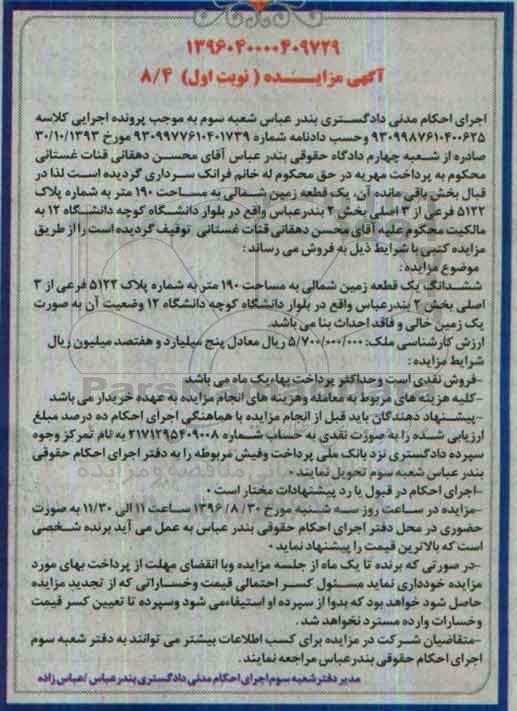 ۱۳۹۶۰۴۰۰۰۰۴۰۹۷۲۹
آگهی مزایـــده ( نوبت اول) ۸/۴
اجرای احکام مدنی دادگستری بندر عباس شعبه سوم به موجب پرونده اجرایی کلاسه
۹۳۰۹۹۸۷۶۱۰۴۰۰۶۲۵ وحسب دادنامه شماره ۹۳۰۹۹۷۷۶۱۰۴۰۱۷۳۹ مورخ ۳۰/۱۰/۱۳۹۳
صادره از شعبه چهارم دادگاه حقوقی بندر عباس آقای محسن دهقانی قنات غستانی
محکوم به پرداخت مهریه در حق محکوم له خانم فرانک سرداری گردیده است لذا در
قبال بخش باقی مانده آن، یک قطعه زمین شمالی به مساحت ۱۹۰ متر به شماره پلاک
۵۱۲۲ فرعی از ۳ اصلی بخش ۲ بندرعباس واقع در بلوار دانشگاه کوچه دانشگاه ۱۲ به
مالکیت محکوم علیه آقای محسن دهقانی قنات غستانی توقیف گردیده است را از طریق
مزایده کتبی با شرایط ذیل به فروش می رساند :
موضوع مزایده :
ششدانگ یک قطعه زمین شمالی به مساحت ۱۹۰ متر به شماره پلاک ۵۱۲۲ فرعی از ۳
اصلی بخش ۲ بندرعباس واقع در بلوار دانشگاه کوچه دانشگاه ۱۲ وضعیت آن به صورت
یک زمین خالی و فاقد احداث بنا می باشد.
ارزش کارشناسی ملک: ۵/۷۰۰/۰۰۰/۰۰۰ ریال معادل پنج میلیارد و هفتصد میلیون ریال
شرایط مزایده :
-فروش نقدی است وحداکثر پرداخت بهاء یک ماه می باشد
-کلیه هزینه های مربوط به معامله وهزینه های انجام مزایده به عهده خریدار می باشد
-پیشنهاد دهندگان باید قبل از انجام مزایده با هماهنگی اجرای احکام ده درصد مبلغ
ارزیابی شده را به صورت نقدی به حساب شماره ۲۱۷۱۲۹۵۴۰۹۰۰۸ به نام تمرکز وجوه
سپرده دادگستری نزد بانک ملی پرداخت وفیش مربوطه را به دفتر اجرای احکام حقوقی
بندر عباس شعبه سوم تحویل نمایند .
-اجرای احکام در قبول یا رد پیشنهادات مختار است .
-مزایده در ساعت روز سه شنبه مورخ ۳۰/ ۸/ ۱۳۹۶ ساعت ۱۱ الی ۱۱/۳۰ به صورت
حضوری در محل دفتر اجرای احکام حقوقی بندر عباس به عمل می آید برنده شخصی
است که بالاترین قیمت را پیشنهاد نماید .
-در صورتی که برنده تا یک ماه از جلسه مزایده وبا انقضای مهلت از پرداخت بهای مورد
مزایده خودداری نماید مسئول کسر احتمالی قیمت وخساراتی که از تجدید مزایده
حاصل شود خواهد بود که بدوا از سپرده او استیفاءمی شود وسپرده تا تعیین کسر قیمت
وخسارات وارده مسترد نخواهد شد .
-متقاضیان شرکت در مزایده برای کسب اطلاعات بیشتر می توانند به دفتر شعبه سوم
اجرای احکام حقوقی بندرعباس مراجعه نمایند .
مدیر دفتر شعبه سوم اجرای احکام مدنی دادگستری بندر عباس /عباس زاده